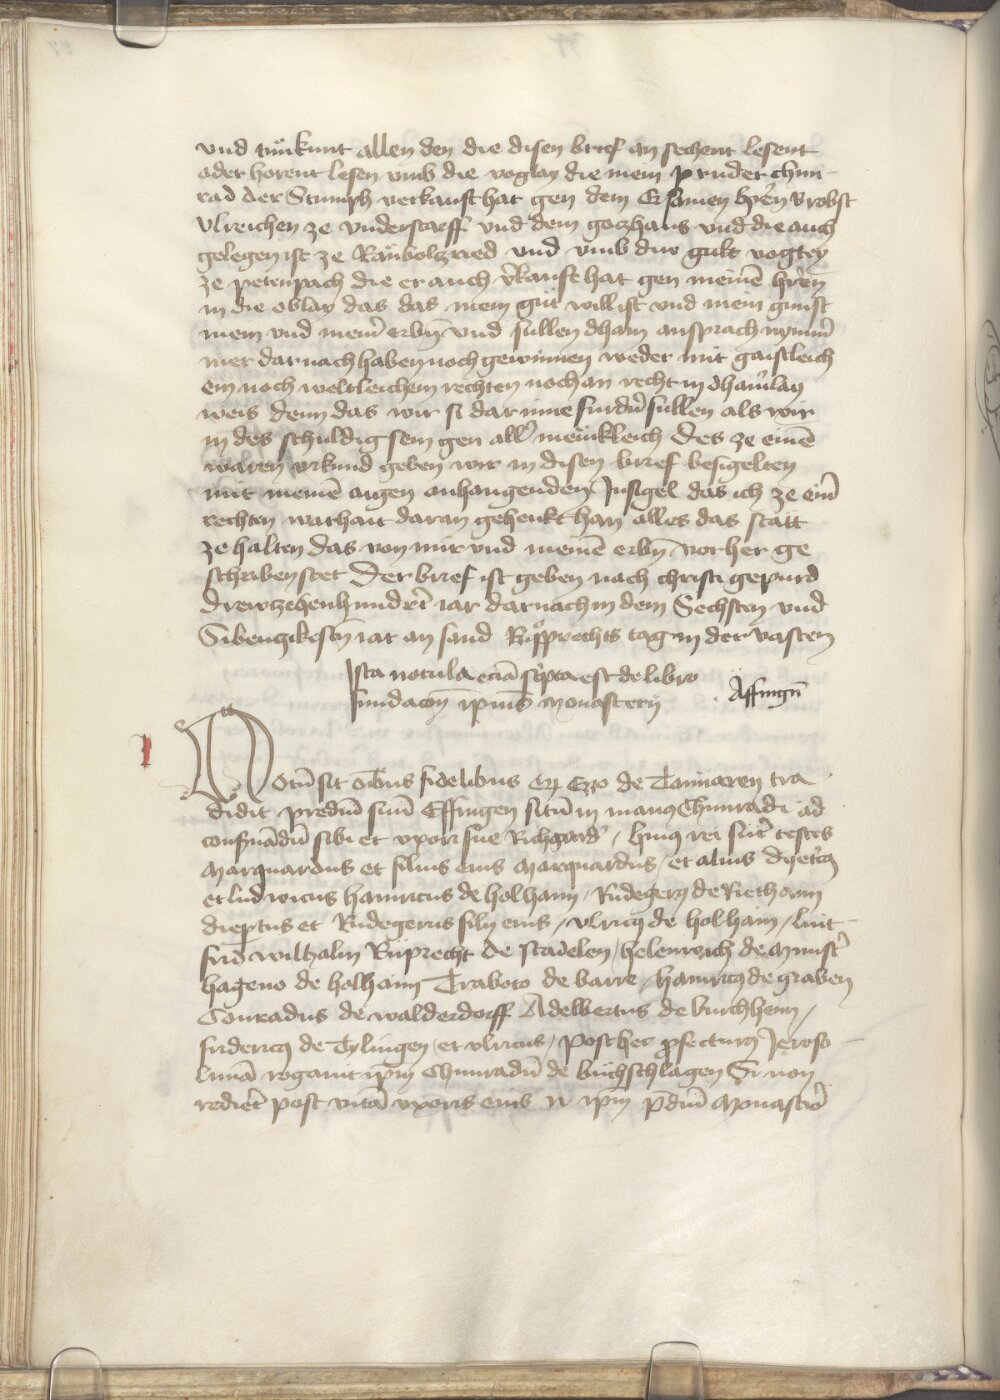 vnd tuͦnkunt allen den die disen brief an sechent lesent
oder horent lesen vmb die vogtay die mein pruder chun
rad der Stumph verkauft hat gen dem Ersamen h̄ren Brobst
Vlreichen ze vnderstorff vnd dem gotzhaus vnd die auch
gelegen ist ze Raͤuboltzried vnd vmb diw gult vogtey
ze petenpach die er auch v̄kauft hat gen meinē h̄ren
in die oblay das das mein guͤt will ist vnd mein gunst
mein vnd mein̄ erbn̄ vnd sullen dhain ansprach nymm̄
mer dar nach haben noch gewinnen weder mit gaistleich
em noch weltleichem rechten noch an recht in dhain̄lay
weis denn das wir si dar inne furdn̄ sullen als wir
in des schuldig sein gen all̄ meinkleich Des ze einē
waren vrkund geben wir in disen brief besigelten
mit meinē aigen anhangenden Insigel das ich ze ein̄
rechten warhait daran gehenkt han alles das staͤtt
ze halten das von mir vnd meinē erbn̄ vorher ge
schriben stet Der brief ist geben nach christi gepurd
Drewzehenhundert iar darnach in dem Sechsten vnd
Sibentzikestn̄ iar an sand Ruͦpprechts tag in der vasten
Ista notula eciā sc̄pta est de libro
fundacōn ip̄ius Monasterij
Äffingn̄
Notū sit om̄ibus fidelibus qz Ezzo de Tanneren tra
didit prediū suū Effingen sitū in manus Chunradi ad
conseruādū sibi et vxori sue Richgard / huius rei sūt testes
Marquardus et filius eius Marquardus / et alius
et ludwicus hainricus de holhaim / Rudeger9 de Riethaim
dieptus et Rudegerus filij eius / vlric9 de holhaim / luit
frid wilhalm Ruprecht de stadelen / helenwich de Munst̄
hageno de holhaim Traboto de barre / hainric9 de graben
Conradus de walderdorff Adelbertus de kirchhem /
frideric9 de Tylingen / et vlricus / post hec profectur9 Jeroso
limā rogauit ip̄m Chunradū de buchschlagen Si non
rediet̄ post vitā vxoris eius vt ip̄m p̄diū Monastio